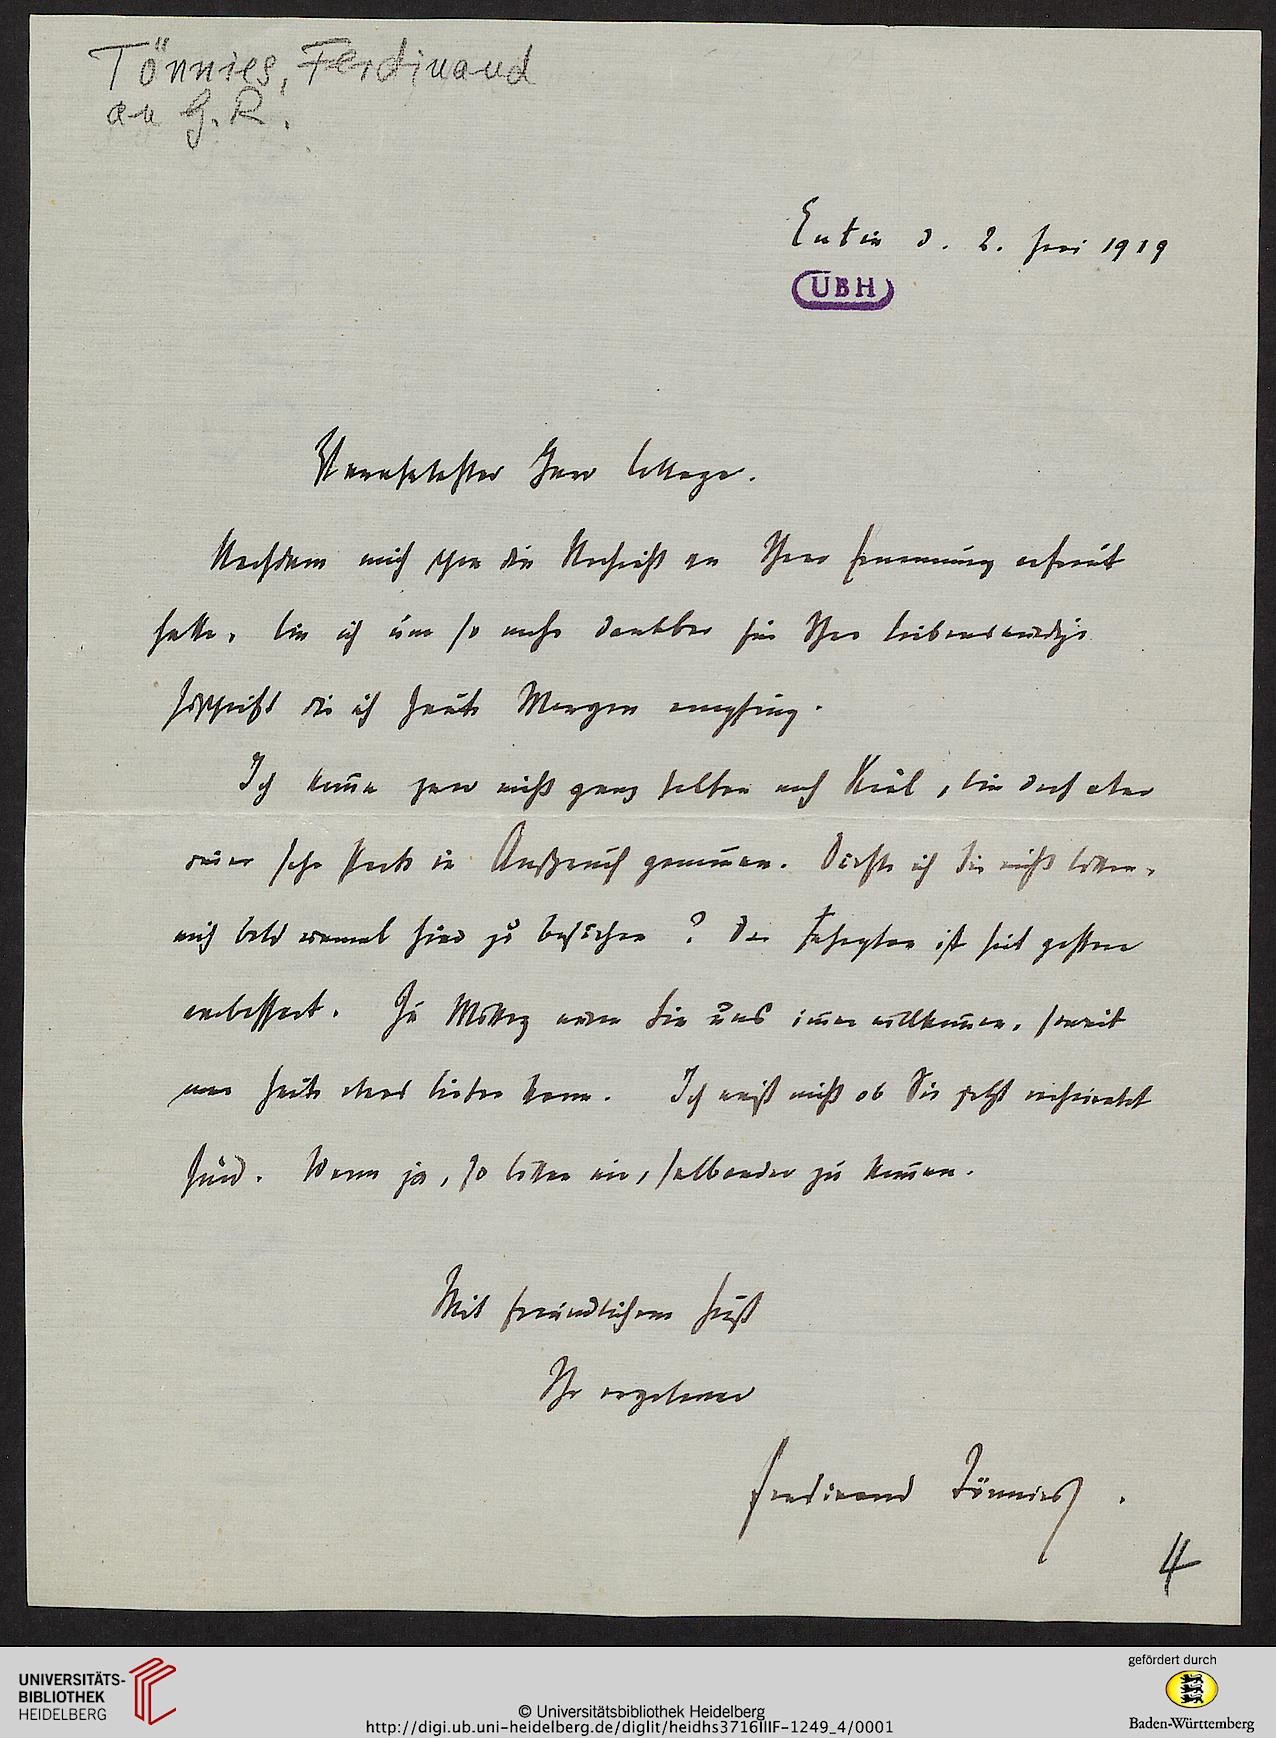 Tönnies, Ferdinand
an G. R.
Eutin d. 2. Juni 1919
UBH
Verehrtester Herr College.
Nachdem mich schon die Nachricht von Ihrer Ernennung erfreut
hatte, bin ich um so mehr dankbar für Ihre liebenswürdige
Zuschrift die ich heute Morgen empfing.
Ich komme zwar nicht ganz selten nach Kiel, bin doch aber
immer sehr stark in Anspruch genommen. Dürfte ich Sie nicht bitten,
mich bald einmal hier zu besuchen? Der Fahrplan ist seit gestern
verbessert. Zu Mittag wären Sie uns immer willkommen, soweit
man heute etwas bieten kann. Ich weiß nicht ob Sie jetzt verheiratet
sind. Wenn ja, so bitten wir, selbander zu kommen.
Mit freundlichem Gruß
Ihr ergebener
Ferdinand Tönnies.
4
UNIVERSITÄTS-
BIBLIOTHEK
HEIDELBERG
© Universitätsbibliothek Heidelberg
http://digi.ub.uni-heidelberg.de/diglit/heidhs3716IIIF-1249_4/0001
gefördert durch
Baden-Württemberg